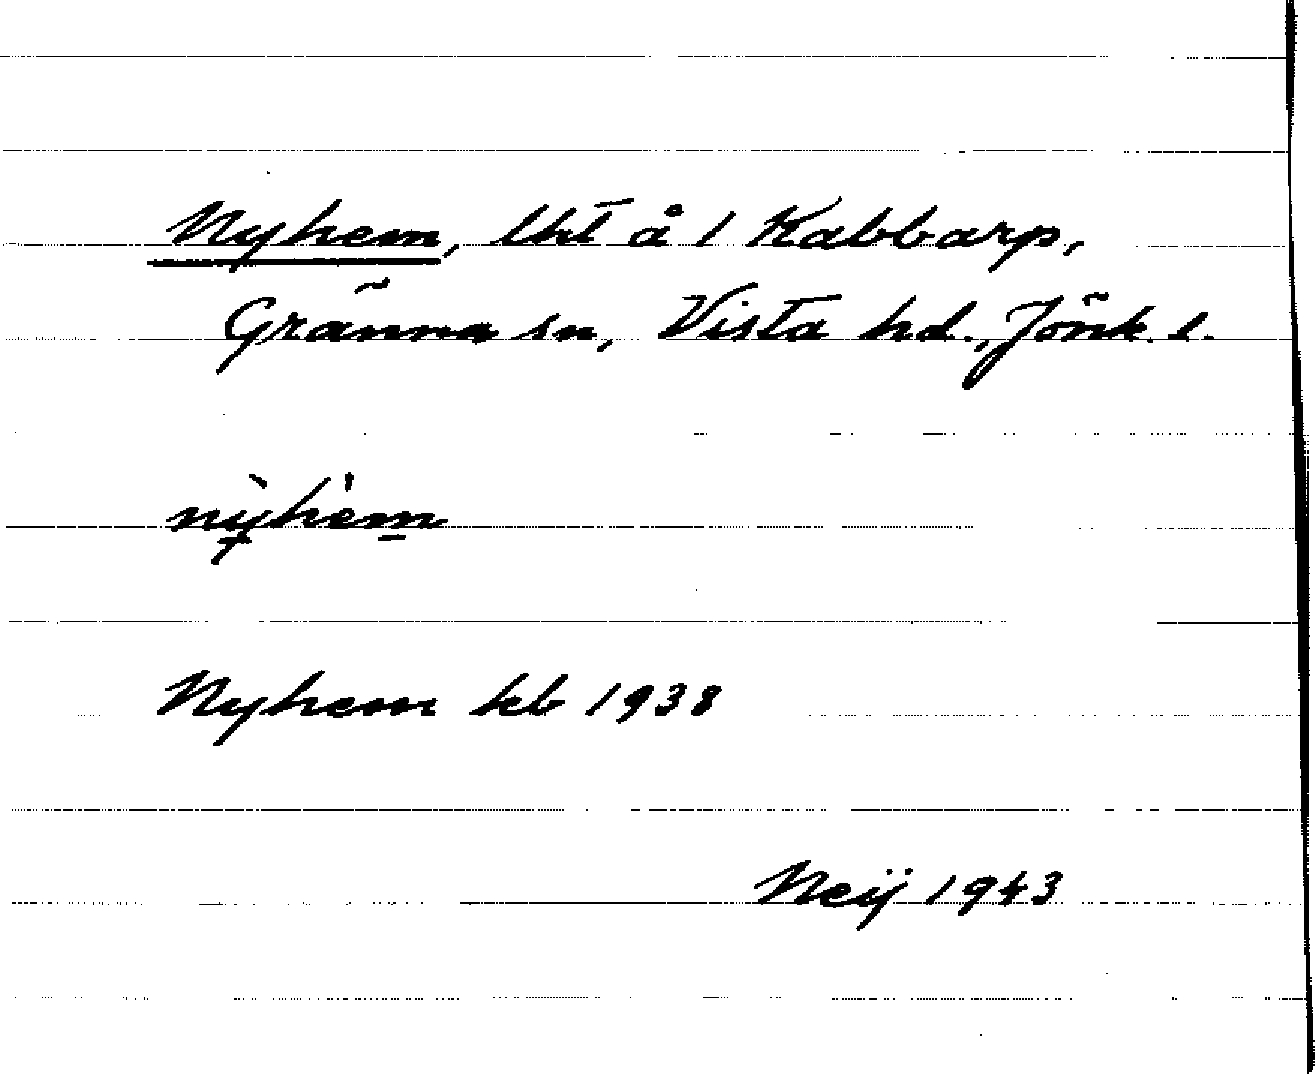 Nyhem, lht å 1 Kabbarp,
Gränna sn, Vista hd., Jönk. l.
nỳhèm
Nyhem kb 1938
Neij 1943